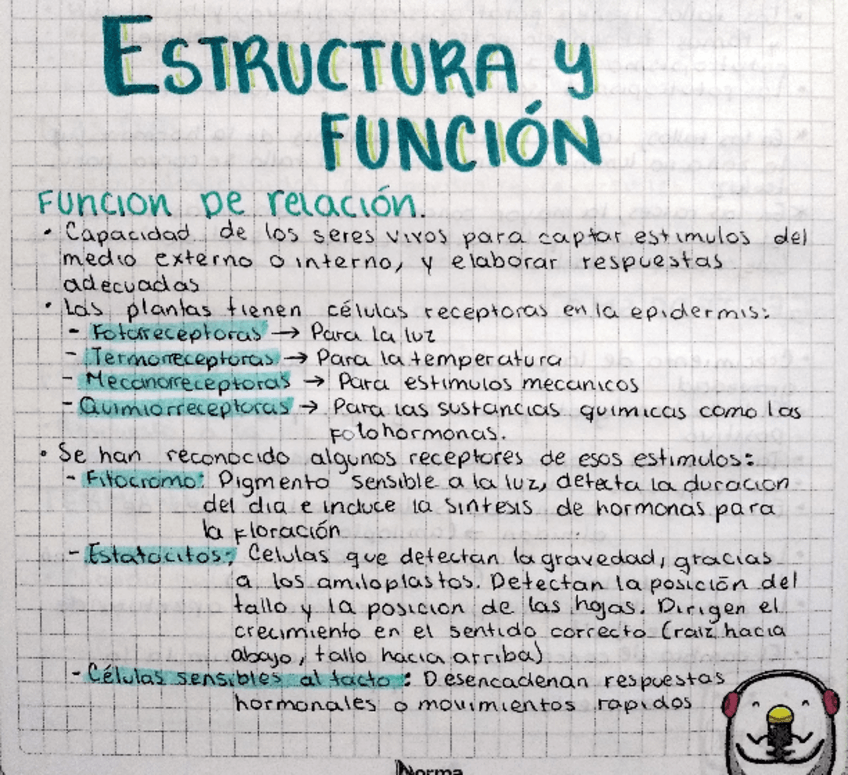 ESTRUCTURA y
FUNCIÓN
FUNCION DE relación.
• Capacidad de los seres vivos para captar estimulos del
medio externo o interno, y elaborar respuestas
adecuadas
• Las plantas tienen células receptoras en la epidermis:
- Fotorreceptoras → Para la luz
- Termorreceptoras → Para la temperatura
- Mecanorreceptoras → Para estimulos mecanicos
- Quimiorreceptoras → Para las sustancias quimicas como las
fotohormonas.
• Se han reconocido algunos receptores de esos estimulos:
- Fitocromo: Pigmento sensible a la luz, detecta la duracion
del dia e induce la sintesis de hormonas para
la floración
- Estatocitos: Celulas que detectan la gravedad, gracias
a los amiloplastos. Detectan la posición del
tallo y la posicion de las hojas. Dirigen el
crecimiento en el sentido correcto (raiz hacia
abajo, tallo hacia arriba)
- Células sensibles al tacto: Desencadenan respuestas
hormonales o movimientos rapidos
Norma